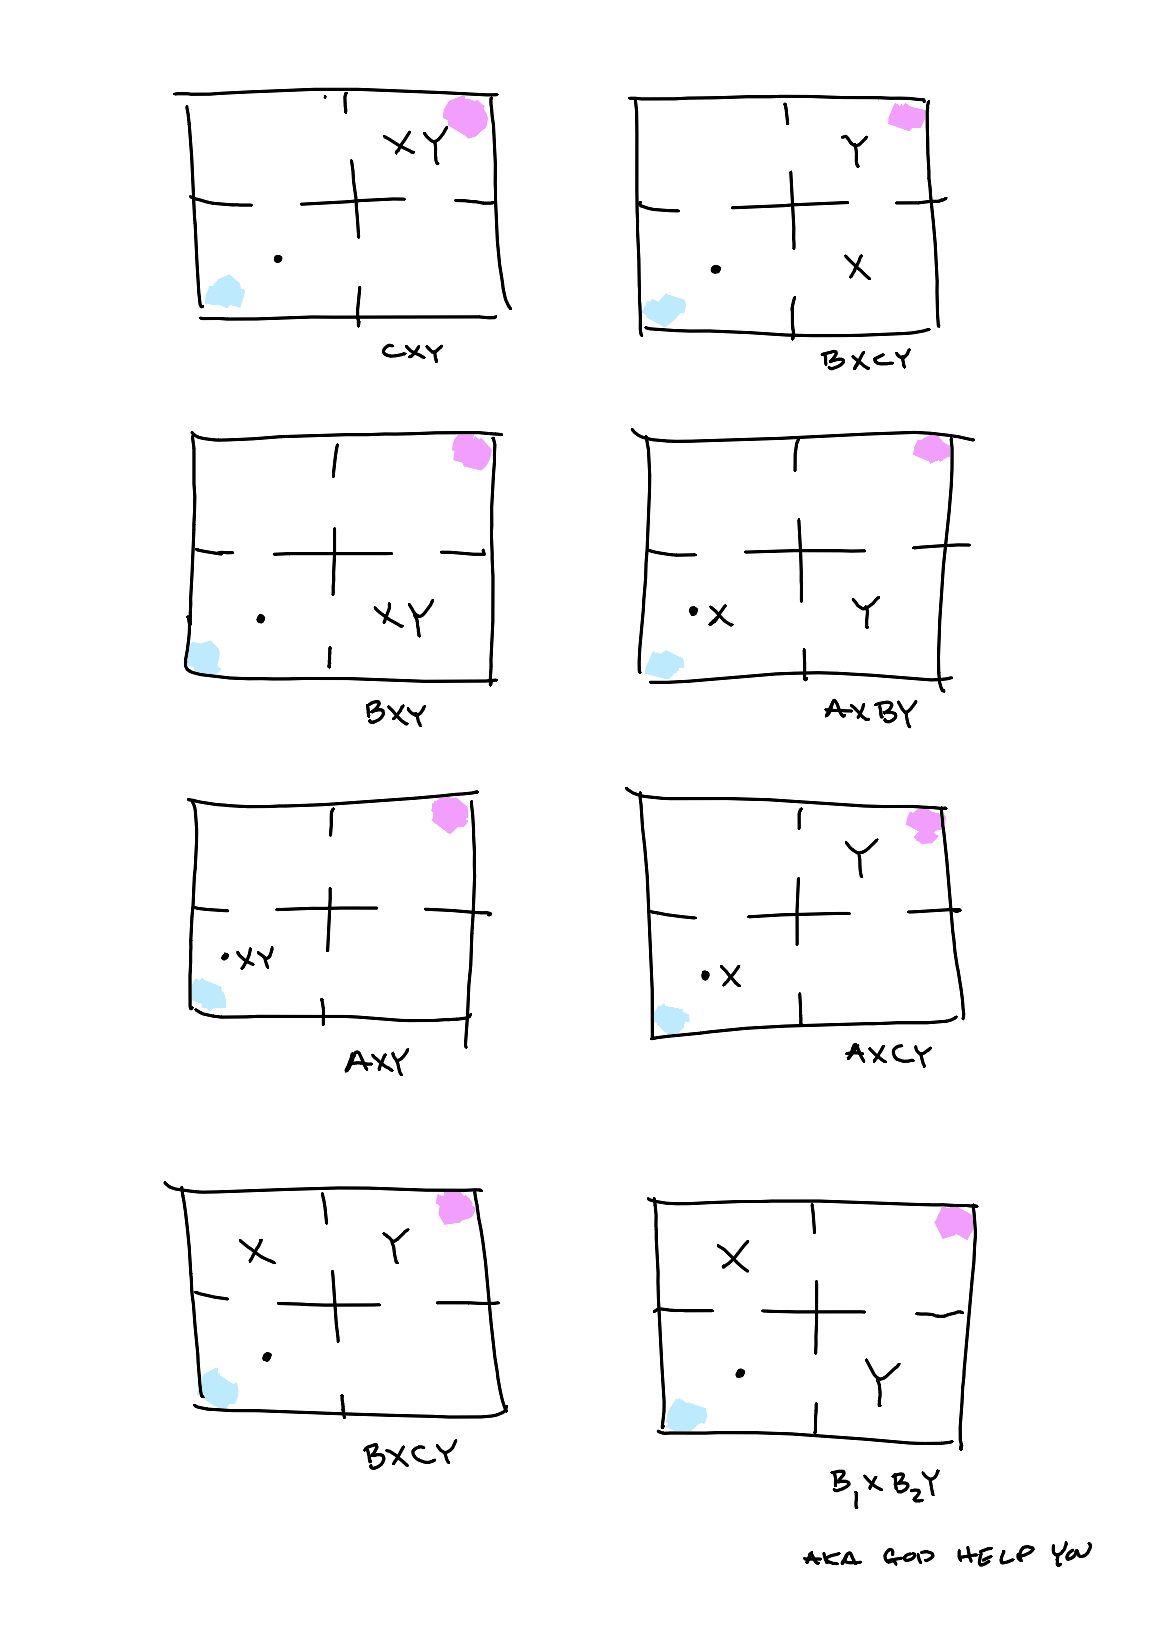 XY
CXY
Y
X
BXCY
XY
BXY
X Y
AXBY
XY
AXY
Y
X
AXCY
X Y
BXCY
X
Y
B₁XB₂Y
AKA GOD HELP YOU